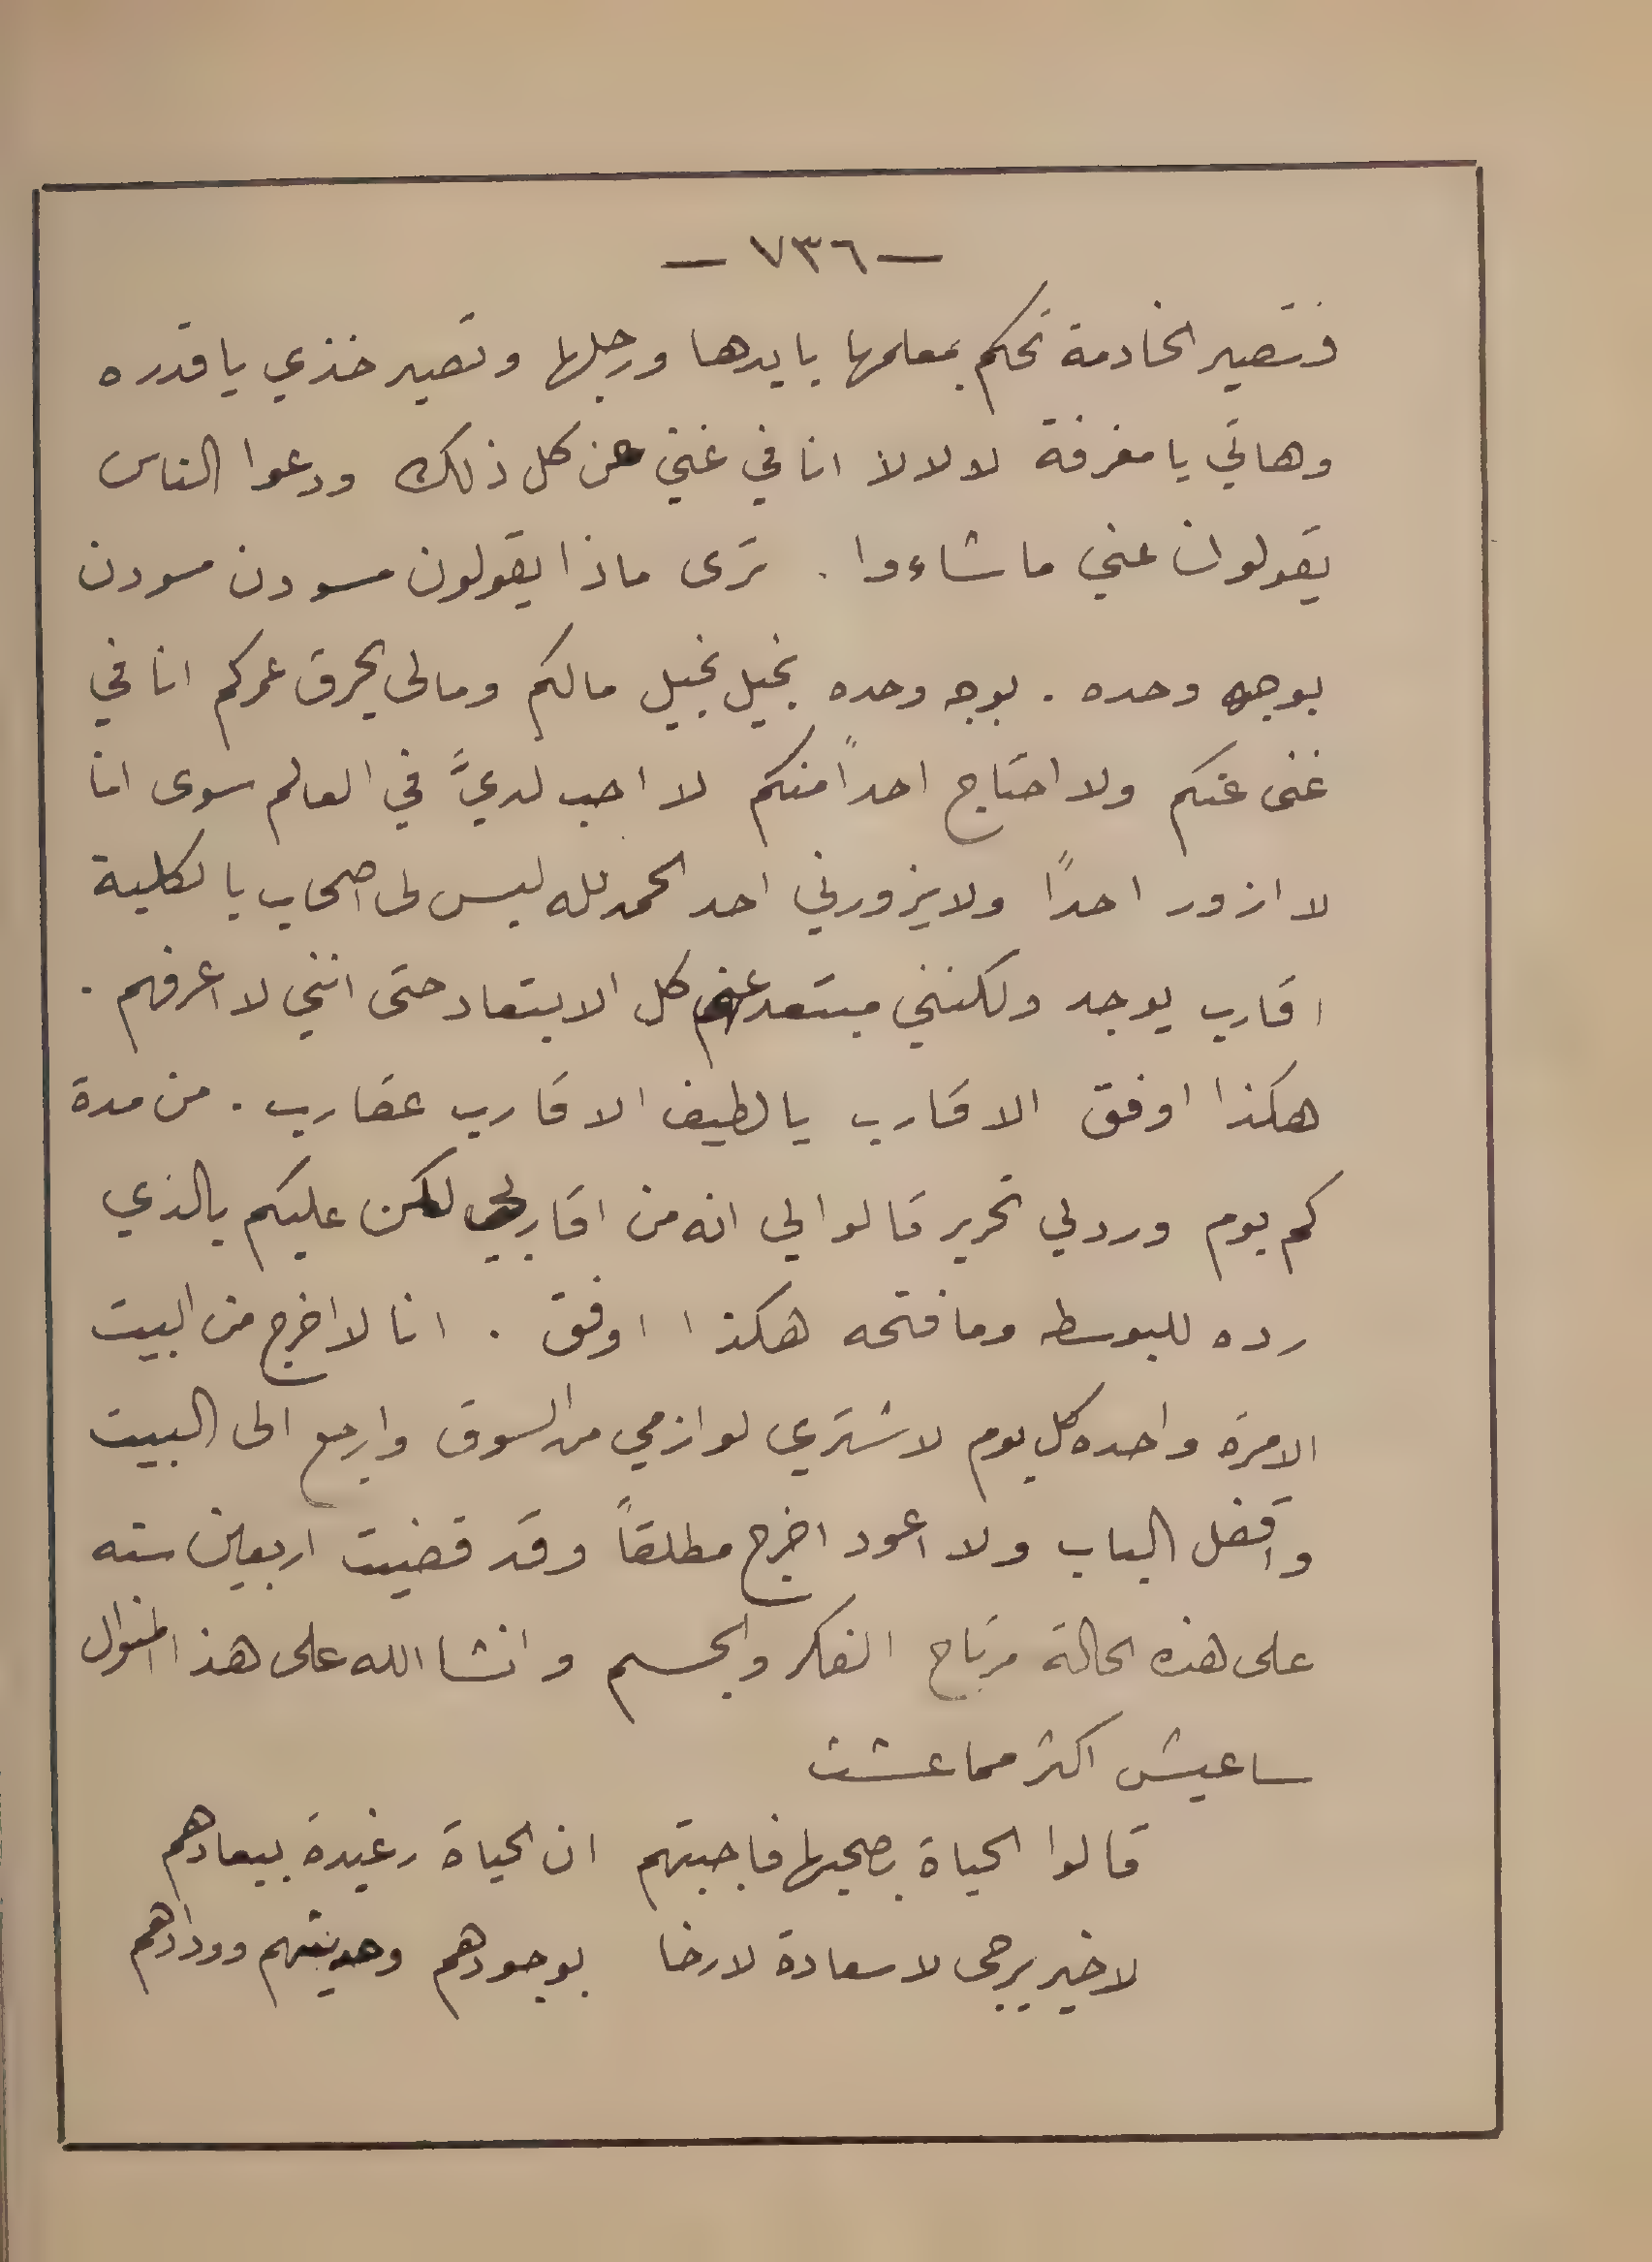 — ٧٣٦ —
فتصير الخادمة تحكم بمعلمها بايدها ورجلها وتصير خذي يا قدره
وهاتي يا مغرفة لا لا لا انا في غنى عن كل ذلك ودعوا الناس
يقولون عني ما شاءوا . ترى ماذا يقولون مسودن مسودن
بوجهه وحده . بوجه وحده بخيل بخيل مالكم ومالى يحرق عمركم انا في
غنى عنكم ولا احتاج احداً منكم لا احب لديَّ في العالم سوى انا
لا ازور احدًا ولا يزورني احد الحمد لله ليس لى اصحاب بالكلية
اقارب يوجد ولكنني مبتعد عنهم كل الابتعاد حتى انني لا اعرفهم .
هكذا اوفق الاقارب يا لطيف الاقارب عقارب . من مدة
كم يوم ورد لي تحرير قالوا لي انه من اقاربي لكن عليكم بالذي
رده للبوسطه وما فتحه هكذا اوفق . انا لا اخرج من البيت
الا مرة واحده كل يوم لاشتري لوازمي من السوق وارجع الى البيت
واقفل الباب ولا اعود اخرج مطلقاً وقد قضيت اربعين سنه
على هذه الحالة مرتاح الفكر والجسم وانشا الله على هذا المنوال
ساعيش اكثر مما عشت
قالوا الحياة بصحبها فاجبتهم ان الحياة رغيدة ببعادهم
لا خير يرجى لا سعادة لا رخا بوجودهم وحديثهم وودادهم